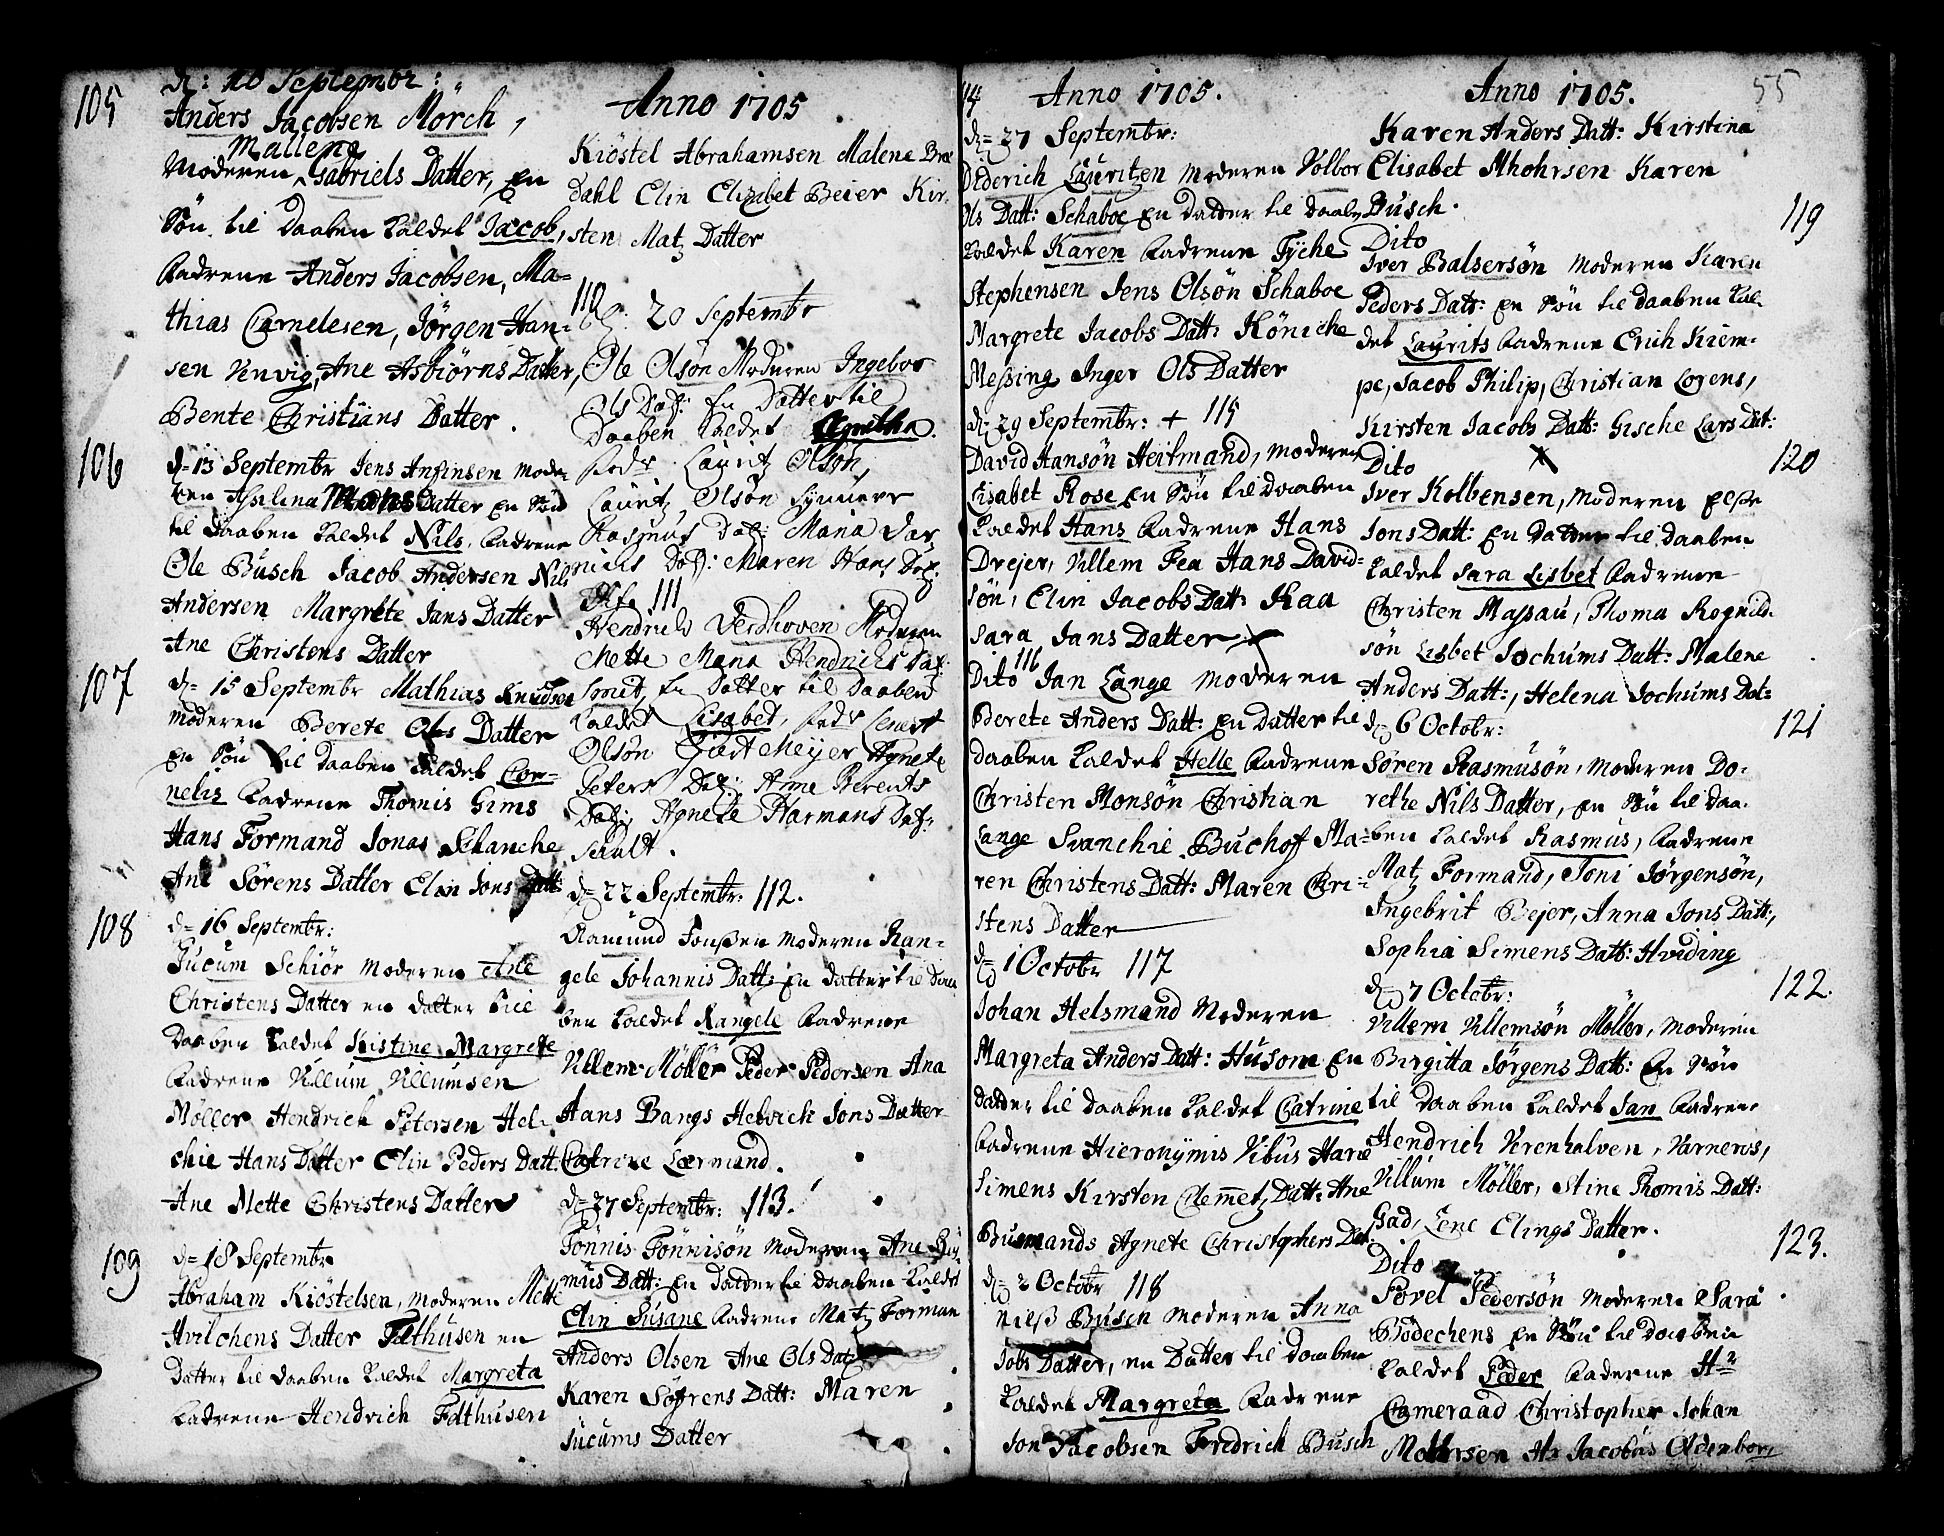 105
d: 10 Septembr:
Anders Jacobsen Mörch,
Mallena
Moderen, Gabriels Datter, En
Sön til Daaben kaldet Jacob,
Fadrene Anders Jacobsen, Ma=
thias Cornelesen, Jörgen Han=
sen Vervig, Ane Asbiörns Datter,
Bente Christians Datter.
106
d= 13 Septembr Jens Anfinsen Mode=
ren Asselena Mons Datter En Sön
til Daaben kaldet Nils, Fadrene
Ole Busch Jacob Andersen Nils
Andersen Margrete Jans Datter
Ane Christens Datter
107
d= 15 Septembr Mathias Knudsen
Moderen Berete Ols Datter
En Sön til Daaben kaldet Cor=
nelis Fadrene Thomis Gims
Hans Formand Jonas Schanche
Ane Sörens Datter Elin Jons Datt:
108
d= 16 Septembr:
Jucum Schiör Moderen Ane
Christens Datter en datter till
Daaben kaldet Kistine Margrete
Fadrene Villum Villumsen
Möller Hendrich Petersen Hel=
chie Hans Datter Elin Peders Datt:
Ane Mette Christens Datter
109
d= 18 Septembr
Abraham Kiöstelsen, Moderen Mette
Hvilchens Datter Falthusen en
Datter til Daaben kaldet Margreta
Fadrene Hendrich Falthusen
Anno 1705
Kiöstel Abrahamsen Malene Bræ
Dahl Elin Elizabet Beier Kir,
sten Matz Datter
110
d: 20 Septembr
Ole Olsön Moderen Ingebor
Ols Dat: En Datter til
Daaben kaldet Agnitha.
Fadr Lauritz Olsön,
Lauritz Olsön Synners
Rasmus Dat: Maria Dar
niels Dat: Maren Hans Dat:
Dito 111
Hendrich Verdhoven Moderen
Mette Maria Hendrichs Dat:
Smit, En Datter til Daaben
kaldet Lisabet, Fadr Lenert
Olsön Giert Meyer Agnete
Peters Dat: Anne Berents
Dat: Agnete Harmens Dat:
schult.
d= 22 Septembr: 112.
Aamund Jonssen Moderen Ran=
gele Johannis Datt: En datter til Daa
ben kaldet Rangele Fadrene
Villem Möller Peder Pedersen Ana
Hans Bangs Helvich Jons Datter
Catrine Lærmand.
d= 27 Septembr: 113.
Tönnis Tönnisön Moderen Ane Ras
mus Datt: En Datter til Daaben kaldet
Elin Susane Fadrene Matz Forman
Anders Olsen Ane Ols Datt
Karen Söfrens Datt: Maren
Jucums Datter
114
Anno 1705.
d= 27 Septembr:
Diderich Lauritzen Moderen Volbor
Ols Datt: Schaboe En datter til daaben
kaldet Karen Fadrene Tyche
Stephensen Jens Olsön Schaboe
Margrete Jacobs Datt: Könicke
Messing Inger Ols Datter
d= 29 Septembr: + 115
David Hansön Heitmand, Moderen
Lisabet Rose En Sön til daaben
kaldet Hans Fadrene Hans
Drejer, Villem Fea Hans David=
sön, Elin Jacobs Datt: Kaa
Sara Jans Datter
Dito 116 Jan Lange Moderen
Berete Anders Datt: En Datter til
daaben kaldet Helle Fadrene
Christen Monsön Christian
Lange Svanchie Buchof Ma=
ren Christens Datt: Maren Chri=
stens Datter
d= 1 Octobr 117
Johan Helsmand Moderen
Margreta Anders Datt: Husom En
datter til daaben kaldet Catrine
Fadrene Hieronymis Vibus Harie
Simens Kirsten Clemmetz Datt: Ane
Busmands Agnete Christophers Dat:
d= 2 Octobr 118
Nilss Busch Moderen Anna
Jobs Datter, en Datter til daaben
kaldet Margreta Fadrene
Jon Jacobsen Fredrich Busch
Anno 1705.
55
Karen Anders Datt: Kirstina
Elisabet Mhohrsen Karen
Busch.
119
Dito
Iver Balsersön Moderen Karen
Peders Datt: En Sön til daaben kal=
det Laurits Fadrene Erich Kiem=
pe, Jacob Philip, Christian Lorens,
Kirsten Jacobs Datt: Gische Lars Dat:
120
Dito
Iver Kolbensen, Moderen Else
Jons Datt: En datter til daaben
kaldet Sara Lisbet Fadrene
Christen Massau, Thoma Rognild
sön Lisbet Jochums Datt: Malene
Anders Datt:, Helena Jochums Dat=
121
d= 6 Octobr:
Sören Rasmusön, Moderen Do=
rethe Nils Datter, en Sön til daa=
ben kaldet Rasmus, Fadrene
Matz Formand, Toni Jörgensön,
Ingebrit Bejer, Anna Jons Datt:,
Sophia Simens Datt: Hviding
122.
d= 7 Octobr:
Villem Villemsön Möller, Moderen
Birgitta Jörgens Datt: En Sön
til daaben kaldet Jan Fadrene
Hendrich Verenhalven, Varneros,
Villum Möller, Stine Thomis Datt:
Gad, Lene Elings Datter.
123.
Dito
Povel Pedersön Moderen Sara
Bödechens En Sön til daaben
kaldet Peder Faderne Hr
Cameraad Christopher Johan
Mohrsen Hr Jacobus Oldenborg